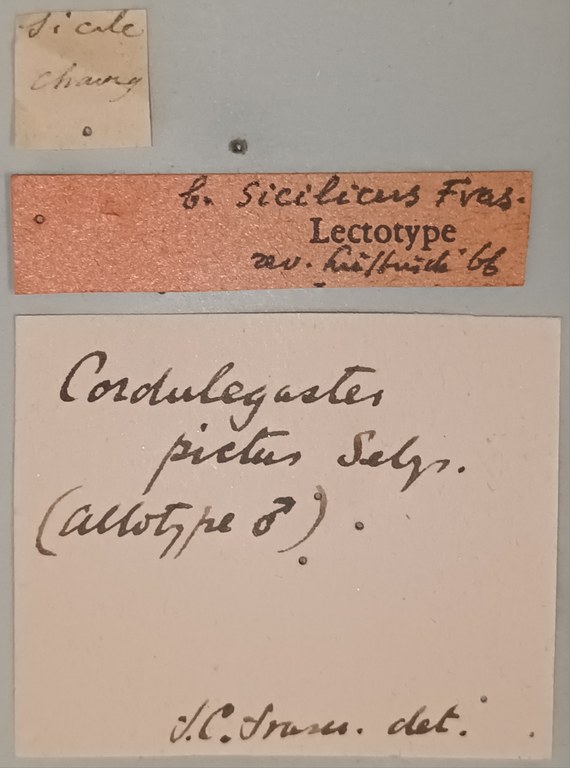 Sicile
b. sicilicus Fras.
Lectotype
rev. '66
Cordulegaster
pictus Selys.
(Allotype ♂)
F.C. Fraser. det.